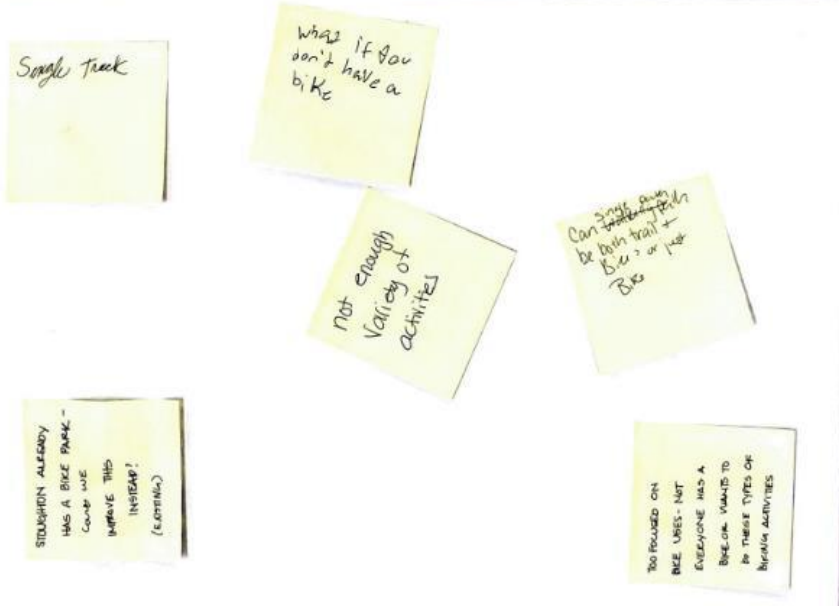 Single Track
what if you
don't have a
bike
not enough
variety of
activities
single
Can
be both trail +
Bike? or just
Bike
STOUGHTON ALREADY
HAS A BIKE PARK -
COULD WE
IMPROVE THIS
INSTEAD!
(EXISTING)
TOO FOCUSED ON
BIKE USES - NOT
EVERYONE HAS A
BIKE OR WANTS TO
DO THESE TYPES OF
BIKING ACTIVITIES